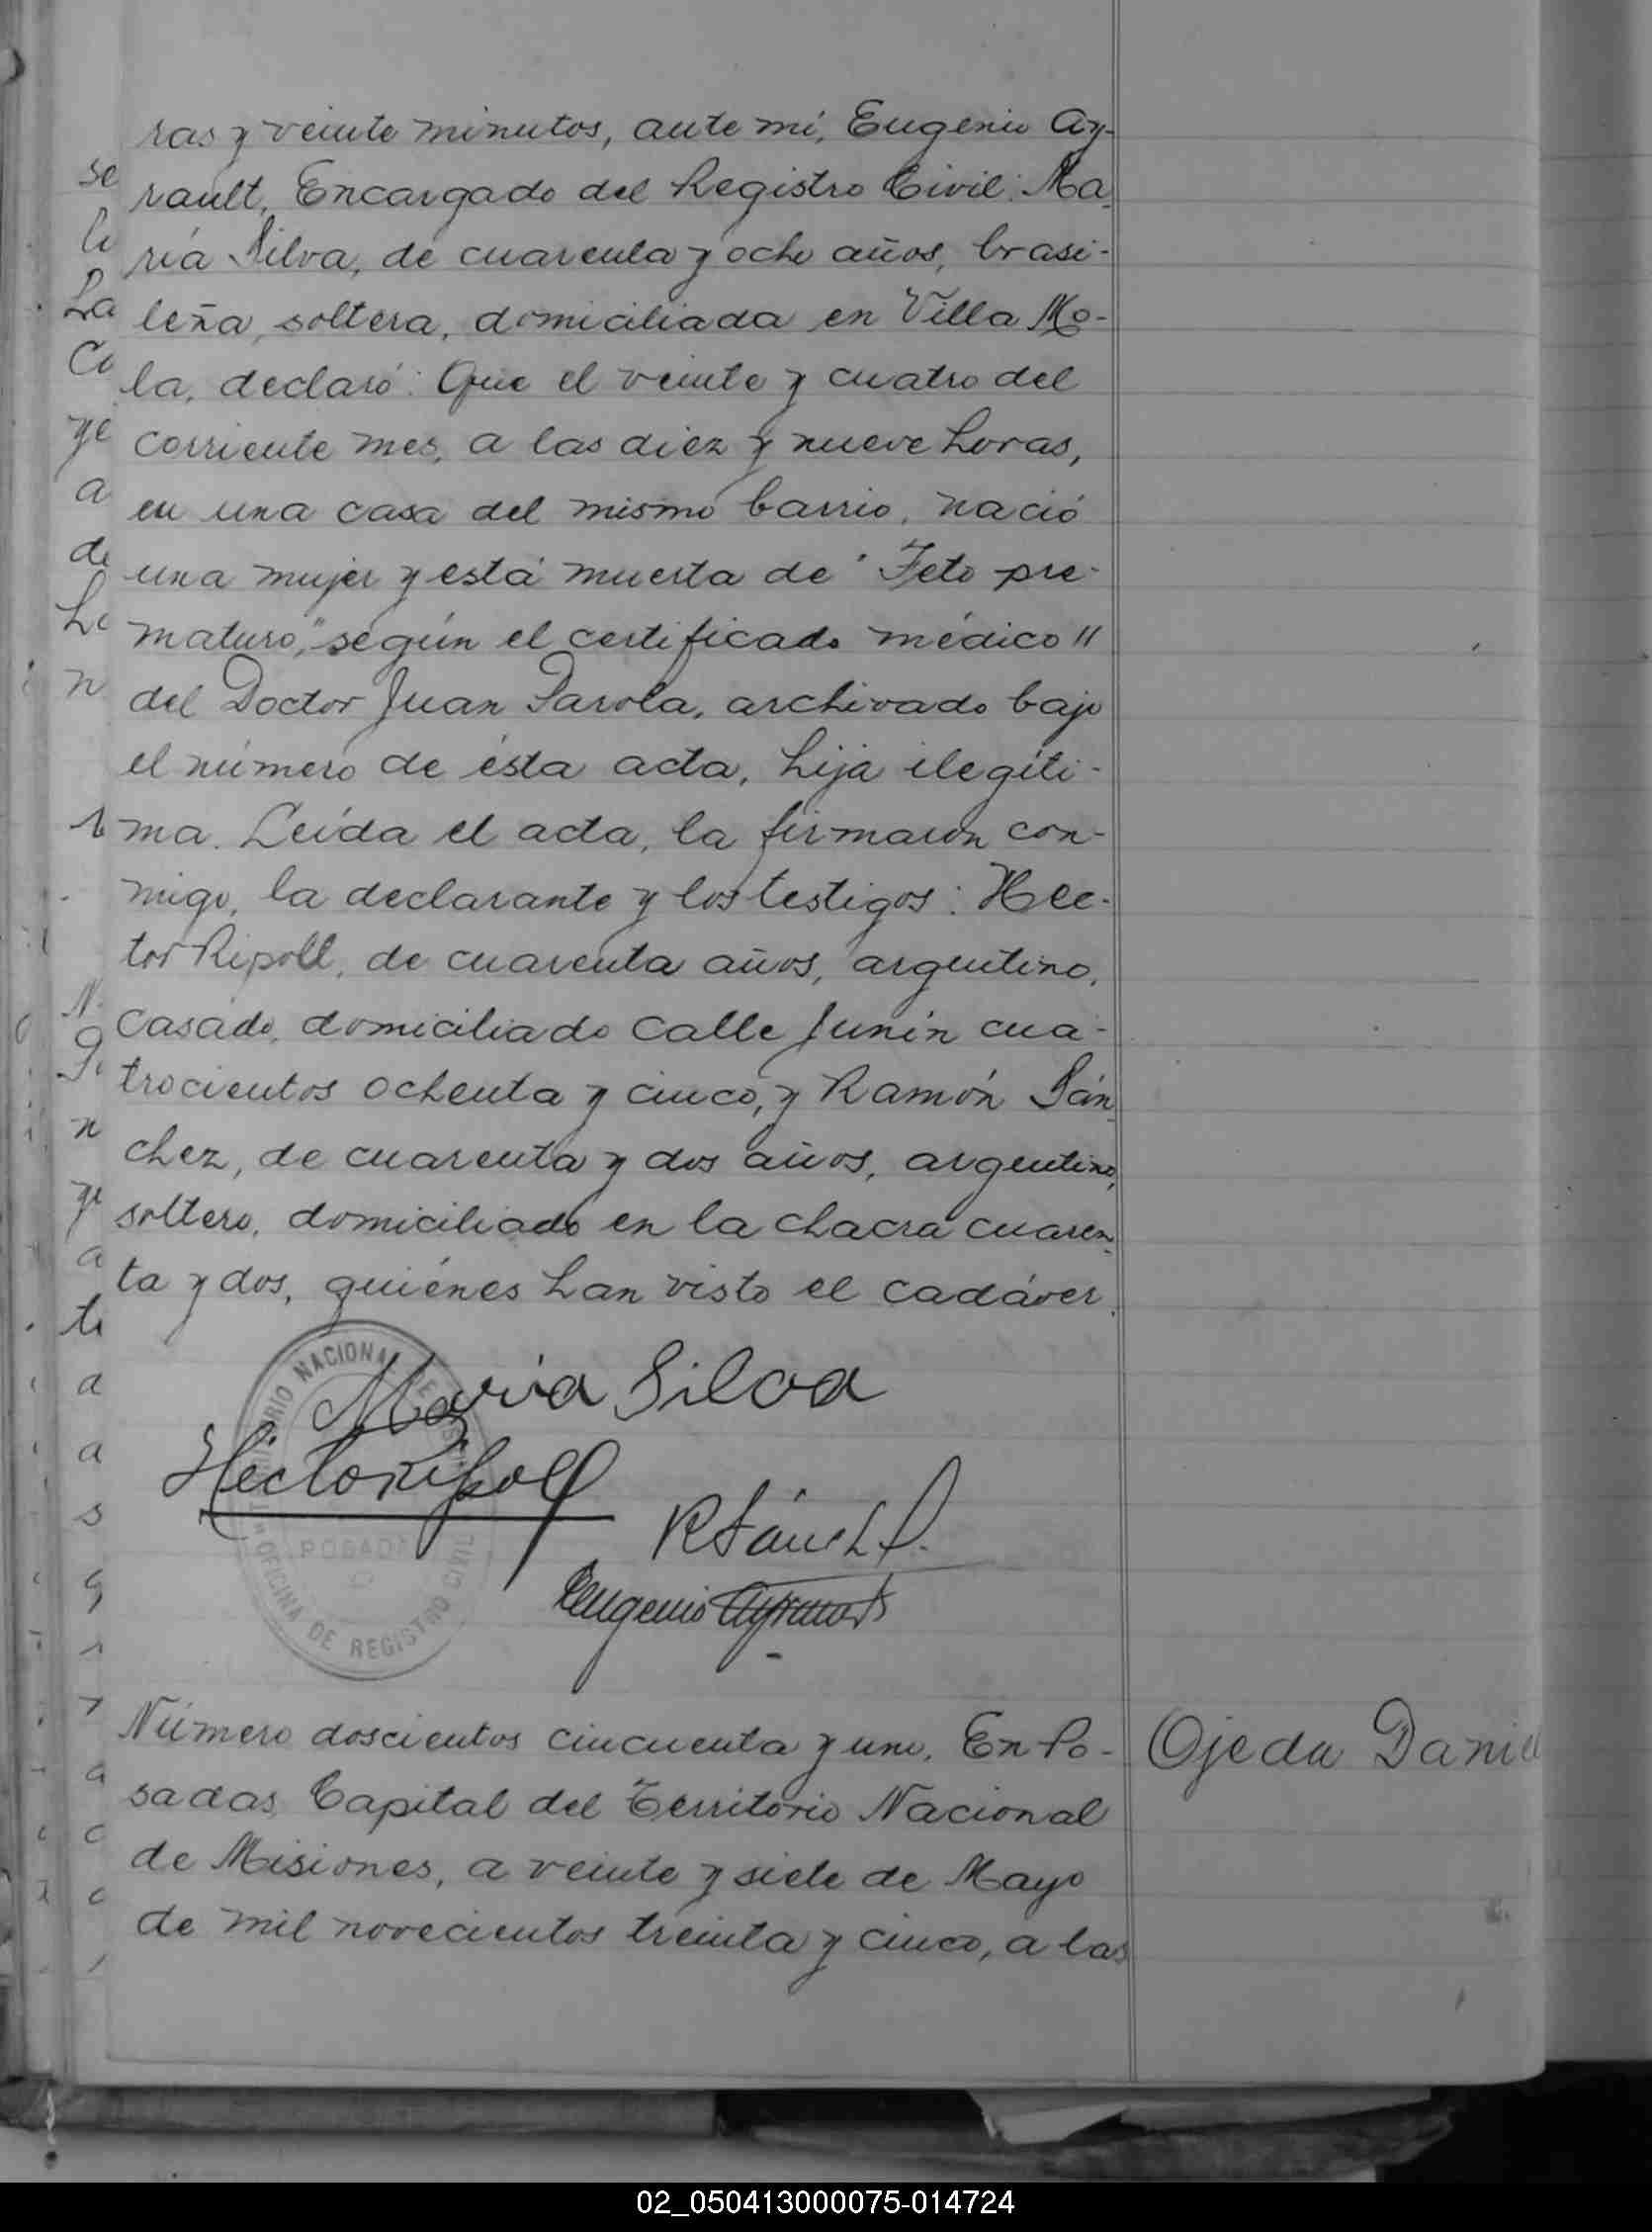 ras y veinte minutos, ante mí, Eugenio Ay-
rault, Encargado del Registro Civil: Ma
ría Silva, de cuarenta y ocho años, brasi-
leña, soltera, domiciliada en Villa Mo-
la, declaró: Que el veinte y cuatro del
corriente mes, a las diez y nueve horas,
en una casa del mismo barrio, nació
una mujer y está muerta de "Feto pre-
maturo," según el certificado médico "
del Doctor Juan Parola, archivado bajo
el número de ésta acta, hija ilegíti-
ma. Leída el acta, la firmaron con-
migo, la declarante y los testigos: Hec-
tor Ripoll, de cuarenta años, argentino,
casado, domiciliado calle Junín cua-
trocientos ochenta y cinco, y Ramón Sán
chez, de cuarenta y dos años, argentino,
soltero, domiciliado en la chacra cuaren
ta y dos, quiénes han visto el cadáver.
María Silva
Hector Ripoll
R Sánchez
Eugenio Ayrault
TERRITORIO NACIONAL DE MISIONES
POSADAS
OFICINA DE REGISTRO CIVIL
Número doscientos cincuenta y uno. En Po-
sadas Capital del Territorio Nacional
de Misiones, a veinte y siete de Mayo
de mil novecientos treinta y cinco, a las
Ojeda Daniel
02_050413000075-014724